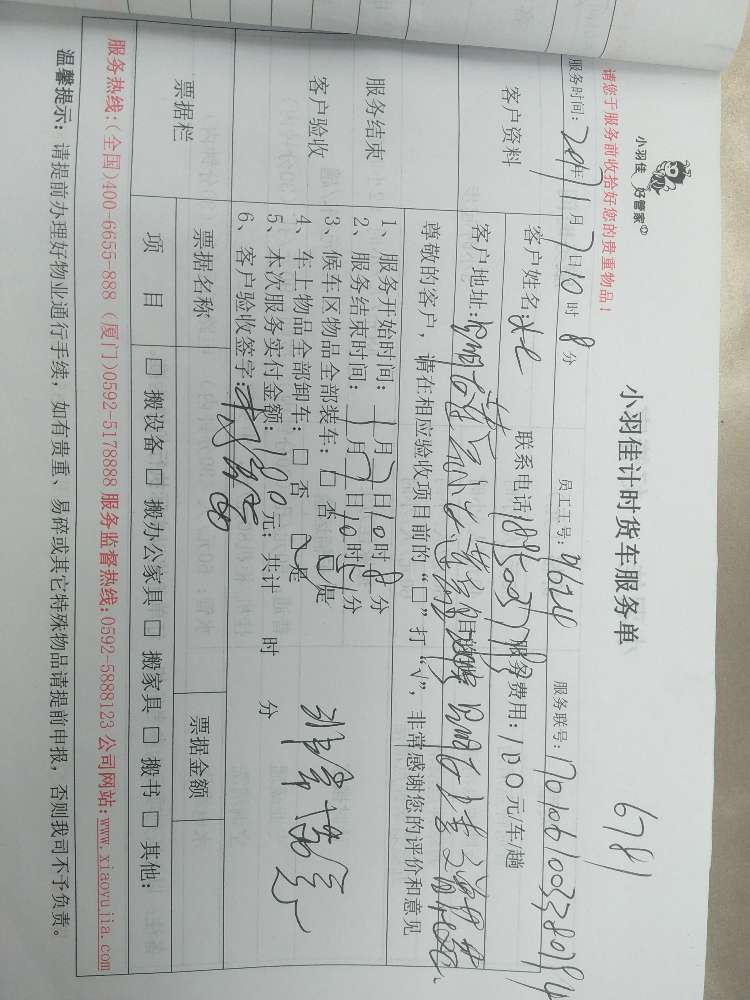 小羽佳 好管家
小羽佳计时货车服务单
6781
请您于服务前收拾好您的贵重物品！
服务时间：2017年1月7日10时8分 员工工号：9624 服务联号：
客户资料
客户姓名： 联系电话 服务费用：100元/车/趟
客户地址：
尊敬的客户，请在相应验收项目前的“□”打“√”，非常感谢您的评价和意见
服务结束
客户验收
1、服务开始时间：1月7日10时8分
2、服务结束时间：1月7日10时51分
3、候车区物品全部装车：□ 否 □ 是
4、车上物品全部卸车：□ 否 □ 是
5、本次服务实付金额：100元；共计 时 分
6、客户验收签字：
票据栏
票据名称 票据金额
项 目 □ 搬设备 □ 搬办公家具 □ 搬家具 □ 搬书 □ 其他：
服务热线：(全国)400-6655-888 (厦门)0592-5178888 服务监督热线：0592-5888123 公司网站：www.xiaoyujia.com
温馨提示：请提前办理好物业通行手续，如有贵重、易碎或其它特殊物品请提前申报，否则我司不予负责。